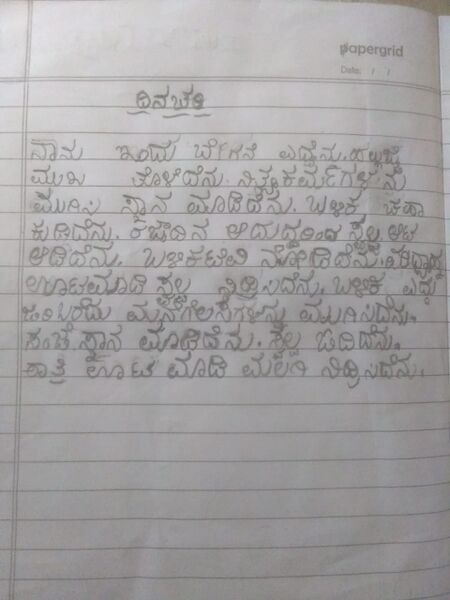 papergrid
Date: / /
ದಿನಚರಿ
ನಾನು ಇಂದು ಬೇಗನೆ ಎದ್ದೆನು. ಹಲ್ಲುಜ್ಜಿ
ಮುಖ ತೊಳೆದೆನು. ನಿತ್ಯಕರ್ಮಗಳನ್ನು
ಮುಗಿಸಿ ಸ್ನಾನ ಮಾಡಿದೆನು. ಬಳಿಕ ಚಹಾ
ಕುಡಿದೆನು. ರಜಾದಿನ ಆದುದ್ದರಿಂದ ಸ್ವಲ್ಪ ಆಟ
ಆಡಿದೆನು. ಬಳಿಕ ಟಿವಿ ನೋಡಿದೆನು. ಮಧ್ಯಾಹ್ನ
ಊಟಮಾಡಿ ಸ್ವಲ್ಪ ನಿದ್ರಿಸಿದೆನು. ಬಳಿಕ ಎದ್ದು
ಓದಿ ಬರೆದು ಮನೆಗೆಲಸಗಳನ್ನು ಮುಗಿಸಿದೆನು.
ಸಂಜೆ ಸ್ನಾನ ಮಾಡಿದೆನು. ಸ್ವಲ್ಪ ಓದಿದೆನು.
ರಾತ್ರಿ ಊಟ ಮಾಡಿ ಮಲಗಿ ನಿದ್ರಿಸಿದೆನು.